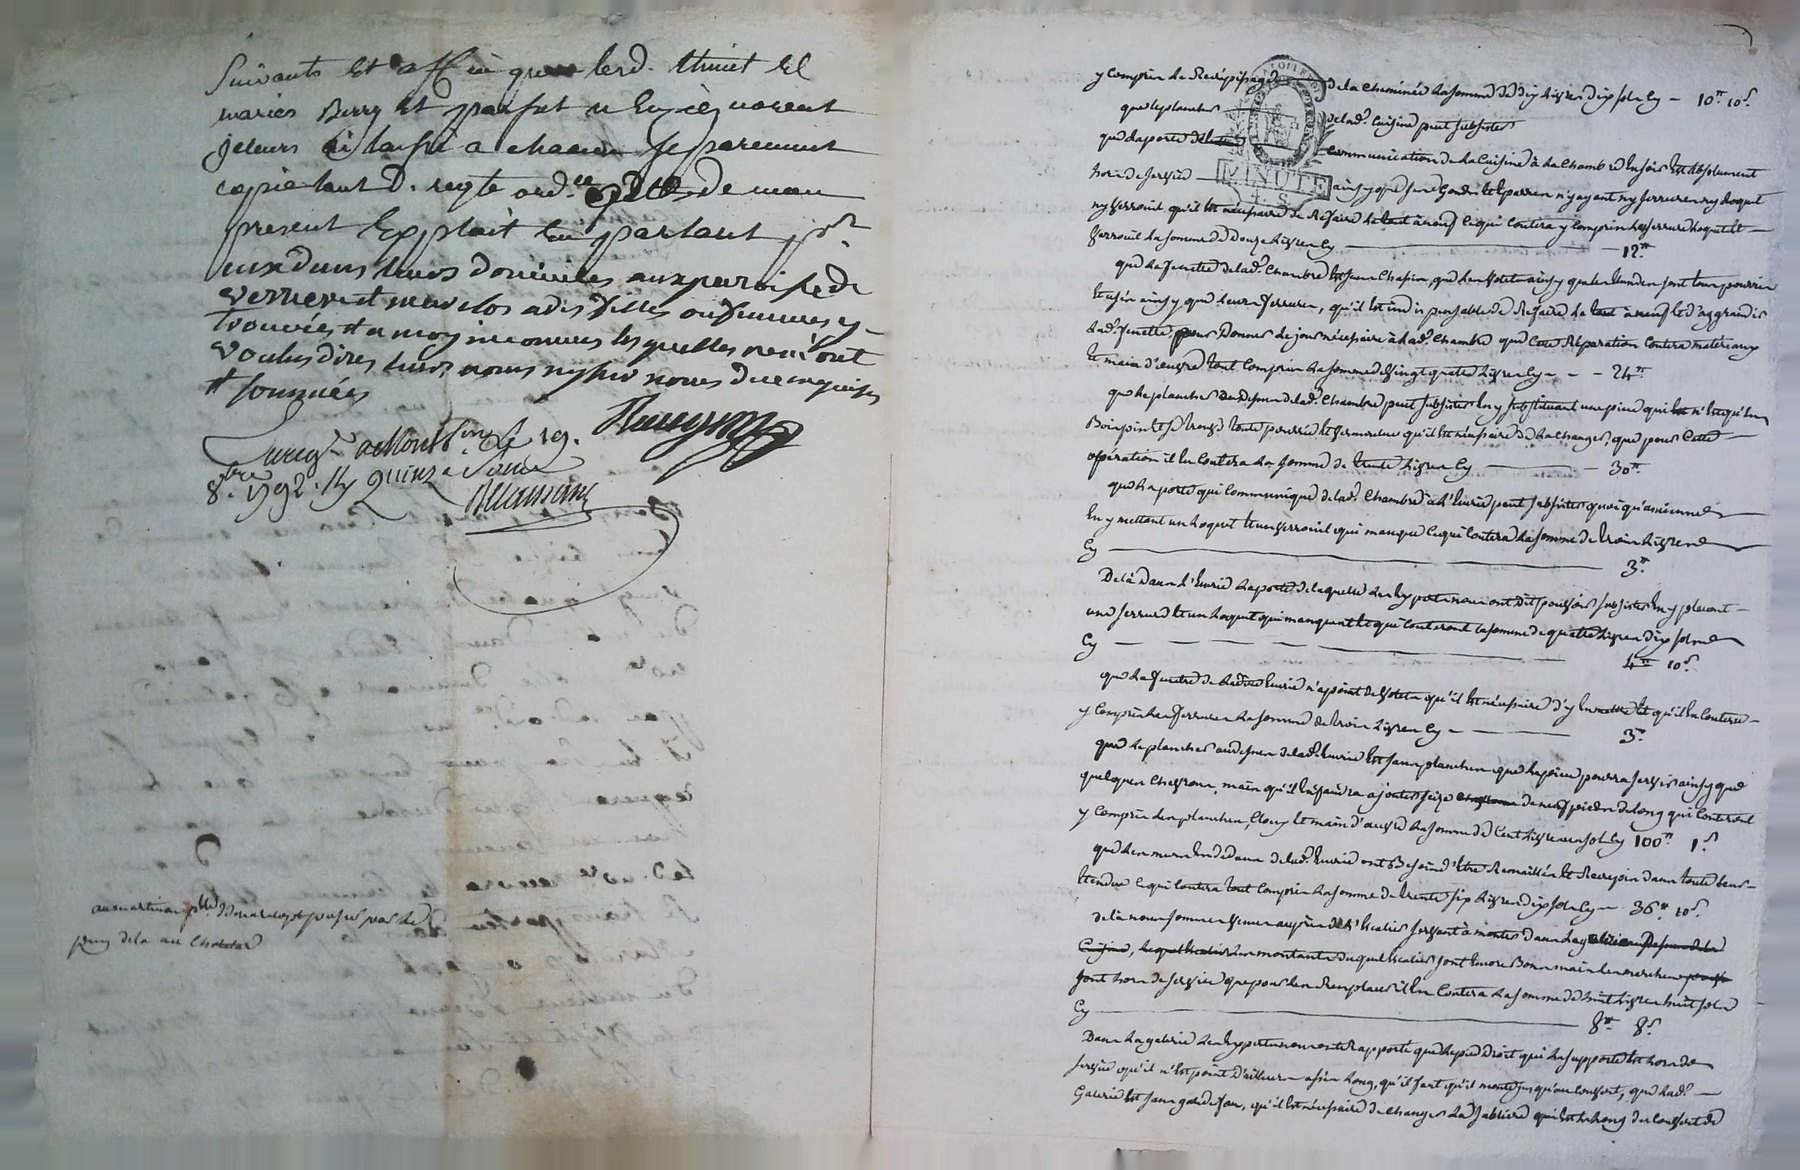 Suivants Et affin que lesd. thinet Et
maries Bury Et parfait n'En ignorent
je leurs ai laissé a chacun separement
copie tant d. reqte ordce que de mon
present Exploit En parlant pr
eux dans leurs domiciles aux paroisse de
verrieres et a des filles ou femmes y
trouvées # a moy inconnues lesquelles n'ont
voulus dires leurs noms ny sur noms de ce enquises
# sommées
Enreg. a le 19.
8.bre 1792. Ry quinze Sous
de la au
y Compris le Recrépissage de la cheminée la somme de dix livres dix sols Cy — 10tt 10s
que le plancher de lad. Cuisine peut subsister
que la porte de communication de la Cuisine à la chambre ensuie Est absolument
hors de service ainsy que ses Gonds Et n'y ayant ny serrure ny loquet
ny verrouil qu'il Est nécéssaire de Refaire le tout à neuf ce qui Contera y Compris la serrure loquet Et
verrouil la somme de Douze livres Cy — 12tt
que la fenetre de lad. Chambre Est sans Chasis, que les volets ainsy que les sont tous pourris
Et usés ainsy que leurs ferrures, qu'il Est indispensable de Refaire le tout à neuf Et d'aggrandir
lad. fenetre pour Donner le jour nécéssaire à lad. Chambre que Cette Réparation Contera materiaux
Et main d'œuvre tout Compris la somme de vingt quatre livres Cy — 24tt
que le plancher au dessus de lad. Chambre peut subsister En y substituant une piece qui n'Est qu'En
Bois pin Et se trouve toute pourrie Et vermoulue qu'il Est nécéssaire de la changer, que pour Cette
opération il En Contera la somme de trente livres Cy — 30tt
que la porte qui Communique de lad. Chambre à l'Ecurie peut subsister quoi qu'ancienne
En y mettant un loquet Et un verrouil qui manque ce qui Contera la somme de trois livres
Cy — 3tt
De là dans l'Ecurie la porte de laquelle les Experts nous ont dit pouvoir subsister En y plaçant
une serrure Et un loquet qui manquent Et qui Conteront la somme de quatre livres dix sols
Cy — 4tt 10s
que la fenetre de ladite Ecurie n'a point de volets qu'il Est nécéssaire d'y En mettre Et qu'il En Contera
y Compris les ferrures la somme de trois livres Cy — 3tt
que le plancher au dessus de lad. Ecurie Est sans planches que les pieces pourra servir ainsy que
quelques Chevrons, mais qu'il En faudra ajouter seize de neuf pieds de long qui Conteront
y Compris les planches, Clous Et main d'œuvre la somme de Cent livres un sol Cy 100tt 1s
que les murs En dedans de lad. Ecurie ont Besoin d'Etre Remaillés Et Recrepis dans toute leur
Etendue ce qui Contera tout Compris la somme de trente six livres dix sols Cy — 36tt 10s
de là nous sommes venus auprès de l'Escalier servant à monter dans la galerie au dessus de la
Cuisine, les montants duquel Escalier sont Encore Bons mais les marches
sont hors de service que pour les Remplacer il En Contera la somme de huit livres huit sols
Cy — 8tt 8s
Dans la galerie les Experts nous ont Rapporté que le pied droit qui la supporte Est hors de
service qu'il n'Est point D'ailleurs assés long, qu'il faut qu'il monte jusqu'au Couvert, que lad.
Galerie Est sans gardefou, qu'il Est nécéssaire de changer la Sabliere qui Est le long du Couvert de